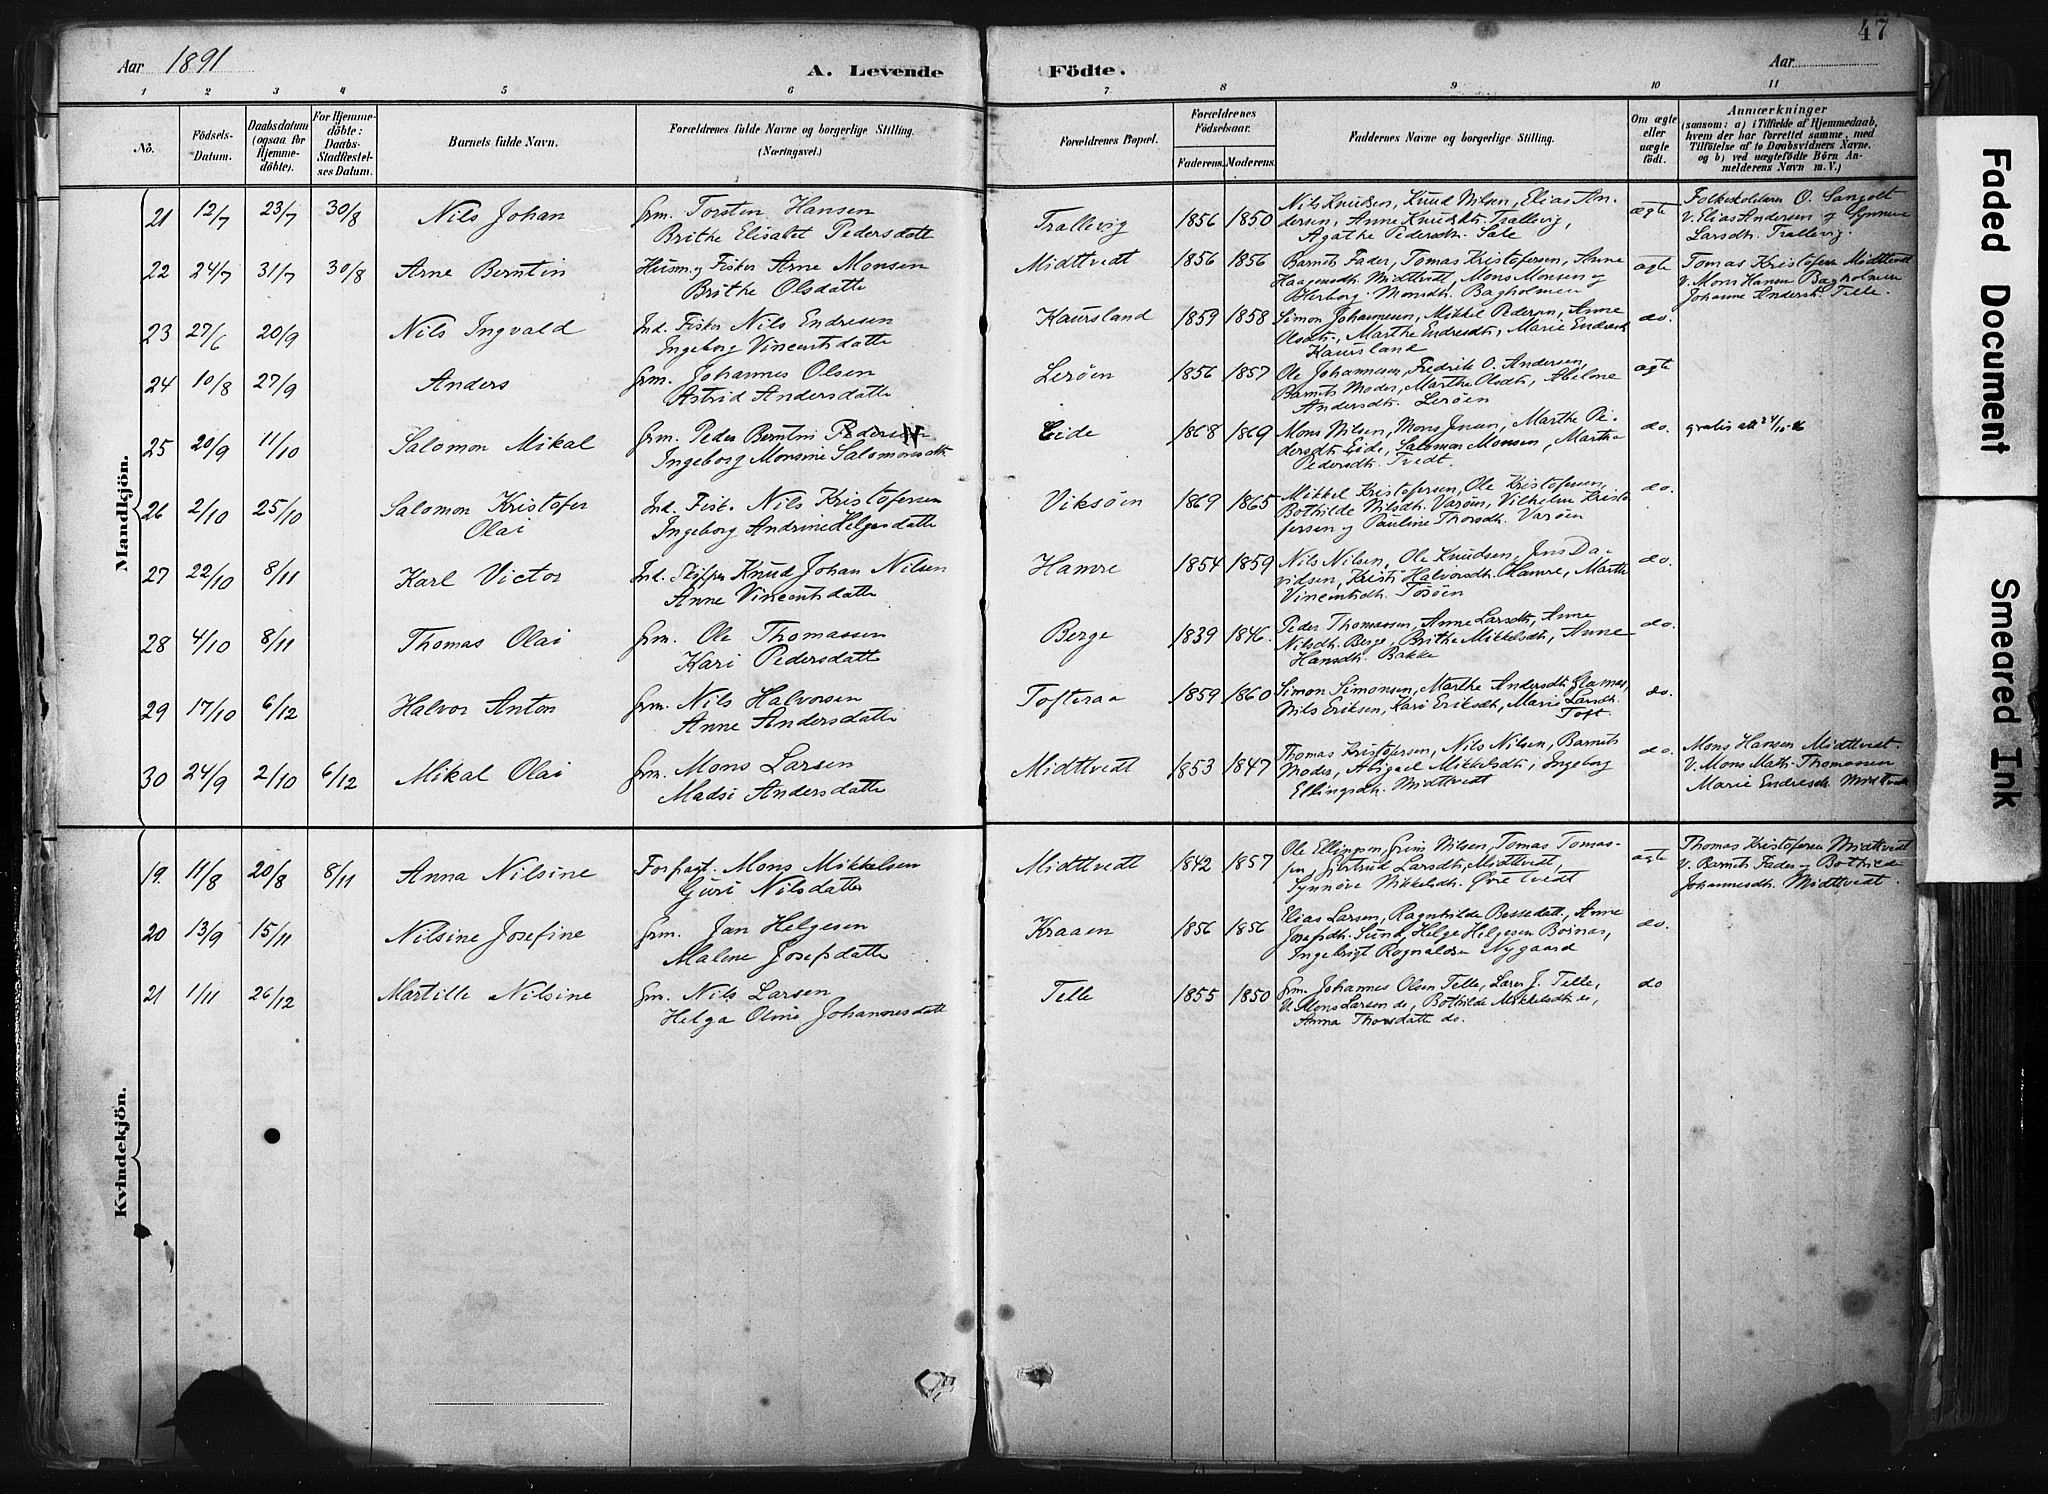 47
Aar 1891
A. Levende Födte.
Aar
1 2 3 4 5 6 7 8 9 10 11
No.
Födsels-Datum.
Daabsdatum (ogsaa for Hjemmedöbte).
For Hjemmedöbte: Daabs-Stadfæstelses Datum.
Barnets fulde Navn.
Forældrenes fulde Navne og borgerlige Stilling.
(Næringsvei.)
Forældrenes Bopæl.
Forældrenes Födselsaar.
Faderens. Moderens.
Faddernes Navne og borgerlige Stilling.
Om ægte eller uægte födt.
Anmærkninger
(saasom: a) i Tilfælde af Hjemmedaab, hvem der har forrettet samme, med Tilföielse af to Daabsvidners Navne. og b) ved uægtefödte Börn Anmelderens Navn m. V.)
Mandkjön.
21 12/7 23/7 30/8 Nils Johan Grm. Torsten Hansen
Brithe Elisabet Pedersdatt
Trallevig 1856 1850 Nils Knudsen, Knud Nilsen, Elias An-
dersen, Anne Knudsdt. Trallevig,
Agathe Pedersdt. Sale
ægte
Folkeskolelærer O. Sangolt
V. Elias Andersen og Synneve
Larsdt. Trallevig.
22 24/7 31/7 30/8 Arne Berntin Husm. og Fisker Arne Monsen
Brithe Olsdatte
Midttvedt 1856 1856 Barnets Fader, Tomas Kristofersen, Anne
Haagensdt. Midttvedt, Mons Monsen og
Herborg Monsdt. Bagholmen
ægte
Tomas Kristofersen Midttvedt
V. Mons Hansen Bagholmen
Johanne Andersdt. Telle.
23 27/6 20/9 Nils Ingvald Ind. Fisker Nils Endresen
Ingeborg Vincentsdatte
Kaursland 1859 1858 Simon Johannesen, Mikkel Pedersen, Anne
Olsdt., Marthe Endresdt., Marie Endresdt
Kaursland
do.
24 10/8 27/9 Anders Grm. Johannes Olsen
Astrid Andersdatte
Lerøen 1856 1857 Ole Johannesen, Fredrik O. Andersen,
Barnets Moder, Marthe Olsdt., Abelone
Andersdt. Lerøen
ægte
25 20/9 11/10 Salomon Mikal Grm. Peder Berntin Pedersen
Ingeborg Monsine Salomonsdt.
Eide 1868 1869 Mons Nilsen, Mons Jensen, Marthe Pe-
dersdt. Eide, Salomon Monsen, Martha
Pedersdt. Tvedt.
do. gratis att 24/10-16
26 2/10 25/10 Salomon Kristofer
Olai
Ind. Fisk. Nils Kristofersen
Ingeborg Andrine Helgesdatte
Viksøen 1869 1865 Mikkel Kristofersen, Ole Kristofersen,
Bothilde Nilsdt. Varøen, Vilhelm Kristo
fersen og Pauline Thorsdt. Varøen
do.
27 22/10 8/11 Karl Victor Ind. Skipper Knud Johan Nilsen
Anne Vincentsdatte
Hamre 1854 1859 Nils Nilsen, Ole Knudsen, Jens Da-
vidsen, Kristi Halvorsdt. Hamre, Marthe
Vincentsdt. Tosøen
do.
28 4/10 8/11 Thomas Olai Grm. Ole Thomassen
Kari Pedersdatte
Berge 1839 1846. Peder Thomassen, Anne Larsdt., Anne
Nilsdt. Berge, Brithe Mikkelsdt., Anne
Hansdt. Bakke
do.
29 17/10 6/12 Halvor Anton Grm. Nils Halvorsen
Anne Andersdatte
Tofteraa 1859 1860 Simon Simonsen, Marthe Andersdt. Glesnæs,
Nils Eriksen, Kari Eriksdt., Marie Larsdt.
Toft.
do.
30 24/9 2/10 6/12 Mikal Olai Grm. Mons Larsen
Madsi Andersdatte
Midttvedt 1853 1847 Thomas Kristofersen, Nils Nilsen, Barnets
Moder, Abigael Mikkelsdt., Ingeborg
Ellingsdt. Midttvedt
do.
Mons Hansen Midttvedt.
V. Mons Math. Thomessen
Marie Endresdt. Midttvedt
Kvindekjön.
19. 11/8 20/8 8/11 Anna Nilsine Forpagt. Mons Mikkelsen
Guri Nilsdatter
Midttvedt 1842 1857 Ole Ellingsen, Grim Nilsen, Tomas Tomas-
sen, Gjertrud Larsdt., Midttvedt,
Synnøve Mikkelsdt. Øvretvedt
ægte
Thomas Kristofersen Midttvedt
V. Barnets Fader og Bothilde
Johannesdt. Midttvedt.
20 13/9 15/11 Nilsine Josefine Grm. Jan Helgesen
Malene Josefsdatte
Kraaen 1856 1856 Elias Larsen, Ragnhilde Bessedatt., Anne
Josefsdt. Sund, Helge Helgesen Boinæs,
Ingebrigt Rognaldsen Nygaard
do.
21 1/11 26/12 Martille Nilsine Grm. Nils Larsen
Helga Oline Johannesdatt
Telle 1855 1850 Grm. Johannes Olsen Telle, Lars J. Telle,
U. Mons Larsen do, Bothilde Mikkelsdt do,
Anna Thorsdatte do.
do
Faded Document
Smeared Ink